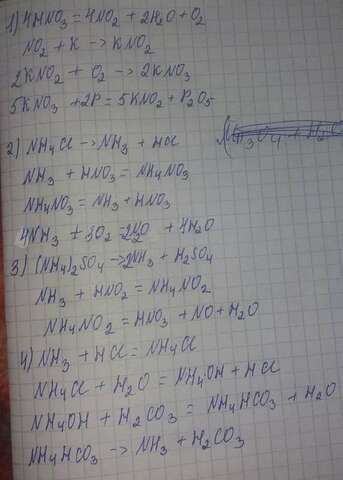 1) 4HNO3 = 4NO2 + 2H2O + O2
NO2 + K -> KNO2
2KNO2 + O2 -> 2KNO3
5KNO3 + 2P = 5KNO2 + P2O5
2) NH4Cl -> NH3 + HCl
NH3 + HNO3 = NH4NO3
NH4NO3 = NH3 + HNO3
4NH3 + 3O2 = + 4H2O
3) (NH4)2SO4 -> 2NH3 + H2SO4
NH3 + HNO2 = NH4NO2
NH4NO2 = HNO3 + NO + H2O
4) NH3 + HCl = NH4Cl
NH4Cl + H2O = NH4OH + HCl
NH4OH + H2CO3 = NH4HCO3 + H2O
NH4HCO3 -> NH3 + H2CO3